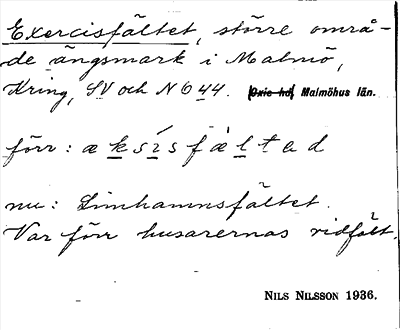 Exercisfältet, större områ-
de ängsmark i Malmö,
Kring, SV och N 644. Oxie hd. Malmöhus län.
förr: æksísfæ̀ltəd
nu: Limhamnsfältet.
Var förr husarernas ridfält.
NILS NILSSON 1936.